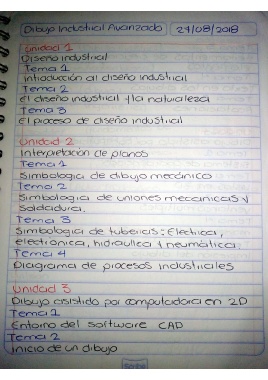 Dibujo Industrial Avanzado 27/08/2018
Unidad 1
Diseño industrial
Tema 1
Introducción al diseño industrial
Tema 2
El diseño industrial y la naturaleza
Tema 3
El proceso de diseño industrial
Unidad 2
Interpretación de planos
Tema 1
Simbología de dibujo mecánico
Tema 2
Simbología de uniones mecánicas y
Soldadura.
Tema 3
Simbología de tuberías: Electrica,
electronica, hidraulica y neumática.
Tema 4
Diagrama de procesos industriales
Unidad 3
Dibujo asistido por computadora en 2D
Tema 1
Entorno del software CAD
Tema 2
Inicio de un dibujo